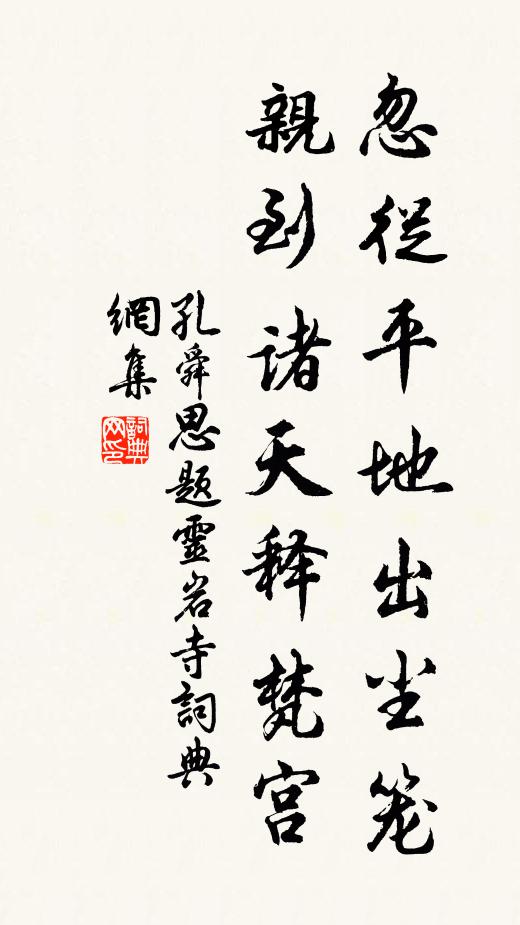 忽從平地出尘笼
親到諸天释梵宫
孔舜思題靈岩寺詞典
網集
詞典
网印